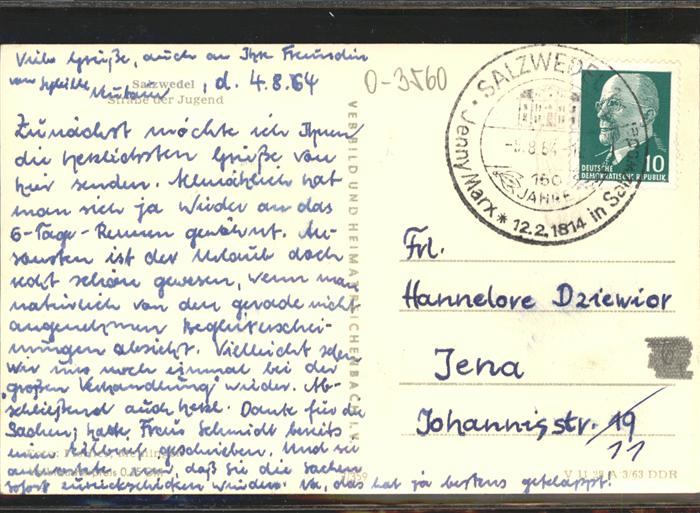 Viele Grüße, auch an Ihre Freundin
von
Salzwedel, d. 4.8.64
Straße der Jugend
0-3560
Zunächst möchte ich Ihnen
die herzlichsten Grüße von
hier senden. Allmählich hat
man sich ja wieder an das
6-Tage-Rennen gewöhnt. An-
sonsten ist der Urlaub doch
recht schön gewesen, wenn man
natürlich von den gerade nicht
angenehmen Begleiterschei-
nungen absieht. Vielleicht sehen
wir uns noch einmal bei der
"großen Verhandlung" wieder. Ab-
schließend auch herzl. Dank für die
Sachen; hatte Frau Schmidt bereits
einen geschrieben. Und sie
antwortete, daß sie die Sachen
sofort zurückschicken würden. Na, das hat ja bestens geklappt!
VERBILD UND HEIMAT REICHENBACH I. V.
SALZWEDEL
8.64
150
JAHRE
Jenny Marx * 12.2.1814 in Salzwedel
DEUTSCHE
DEMOKRATISCHE REPUBLIK
10
Frl.
Hannelore Dziewior
Jena
Johannisstr. 19
11
V 11 28 A 3/63 DDR